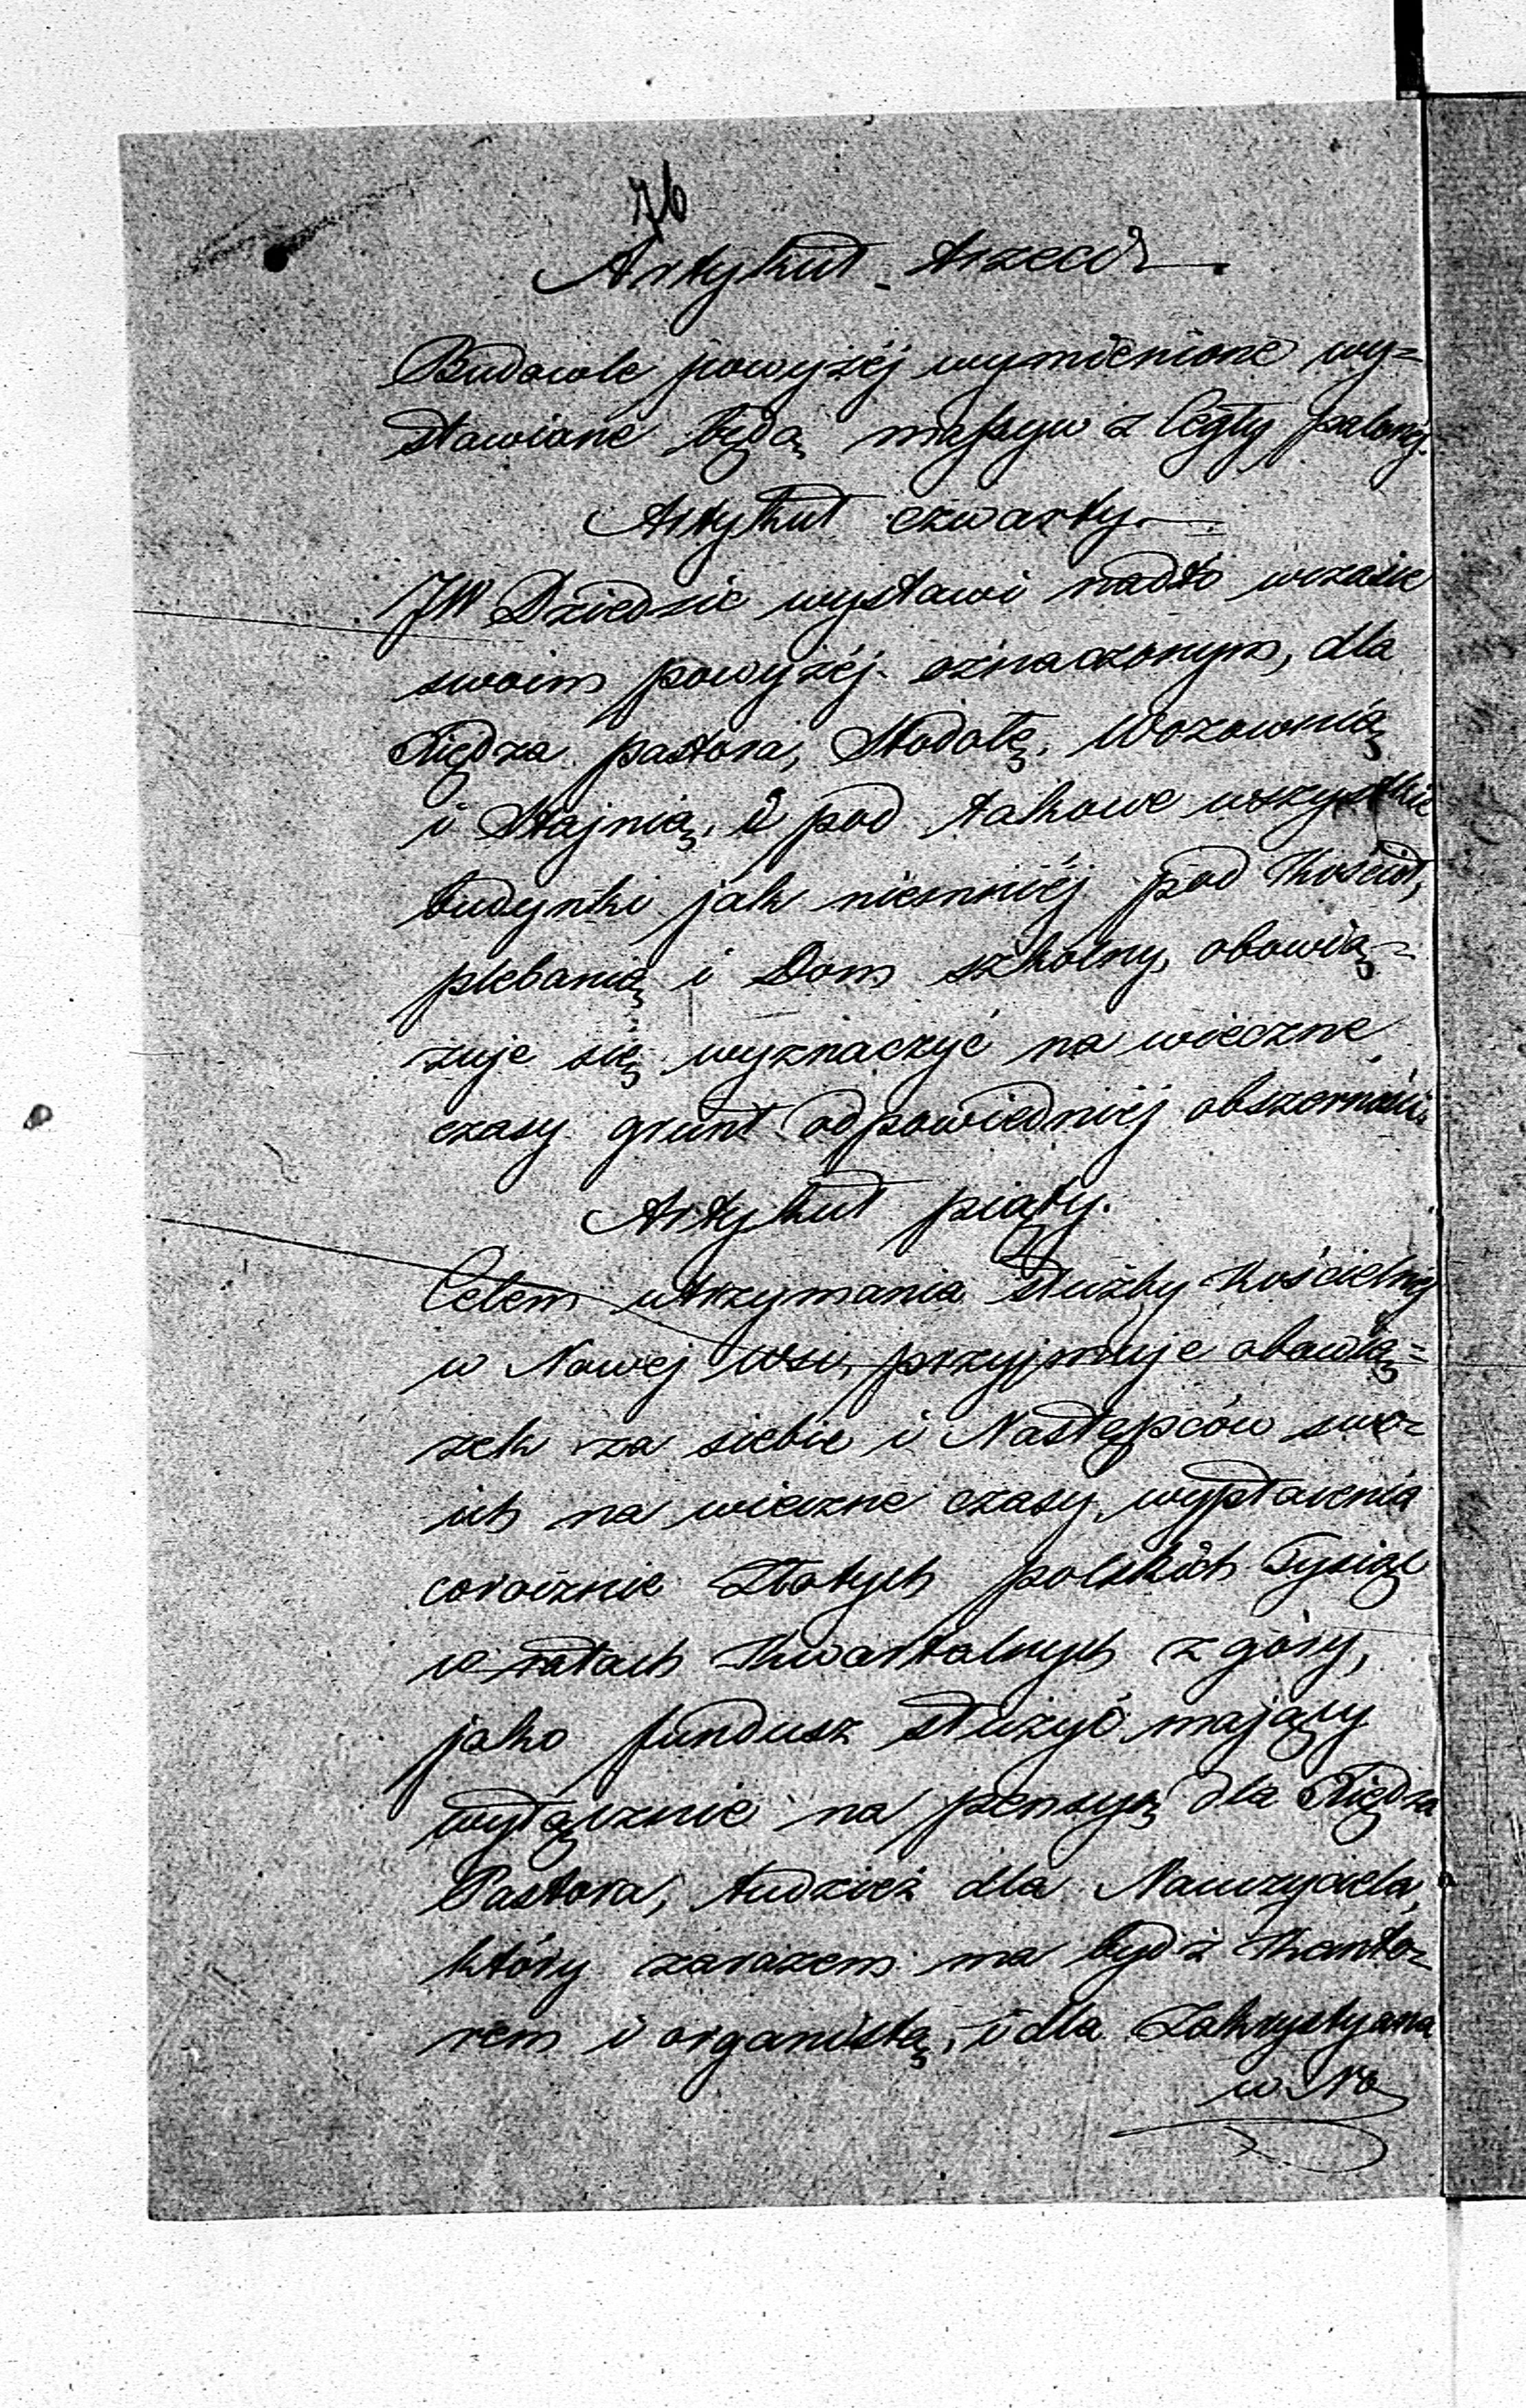 76
Artykuł trzeci
Budowle powyżéj wymienione wy=
stawione będą massyw z Cegły palonéj.
Artykuł czwarty
JW Dziedzic wystawi nadto wczasie
swoim powyżéj oznaczonym, dla
Xiędza pastora, Stodołę, Wozownią
i Stajnią, i pod takowe wszystkie
budynki jak niemniéj pod Kościół,
plebanią i Dom szkólny, obowią=
zuje się wyznaczyć na wieczne
czasy grunt odpowiedniéj obszerności.
Artykuł piąty.
Celem utrzymania służby Kościelnéj
w Nowej Wsi, przyjmuje obowią=
zek za siebie i Następców swo=
ich na wieczne czasy wypłacenia
corocznie Złotych polskich Tysiąc
w ratach Kwartalnych z góry,
jako fundusz służyć mający
wyłącznie na pensyą dla Xiędza
Pastora, tudzież dla Nauczyciela,
który zarazem ma bydź Kanto=
rem i organistą, i dla Zakrystyana
w No